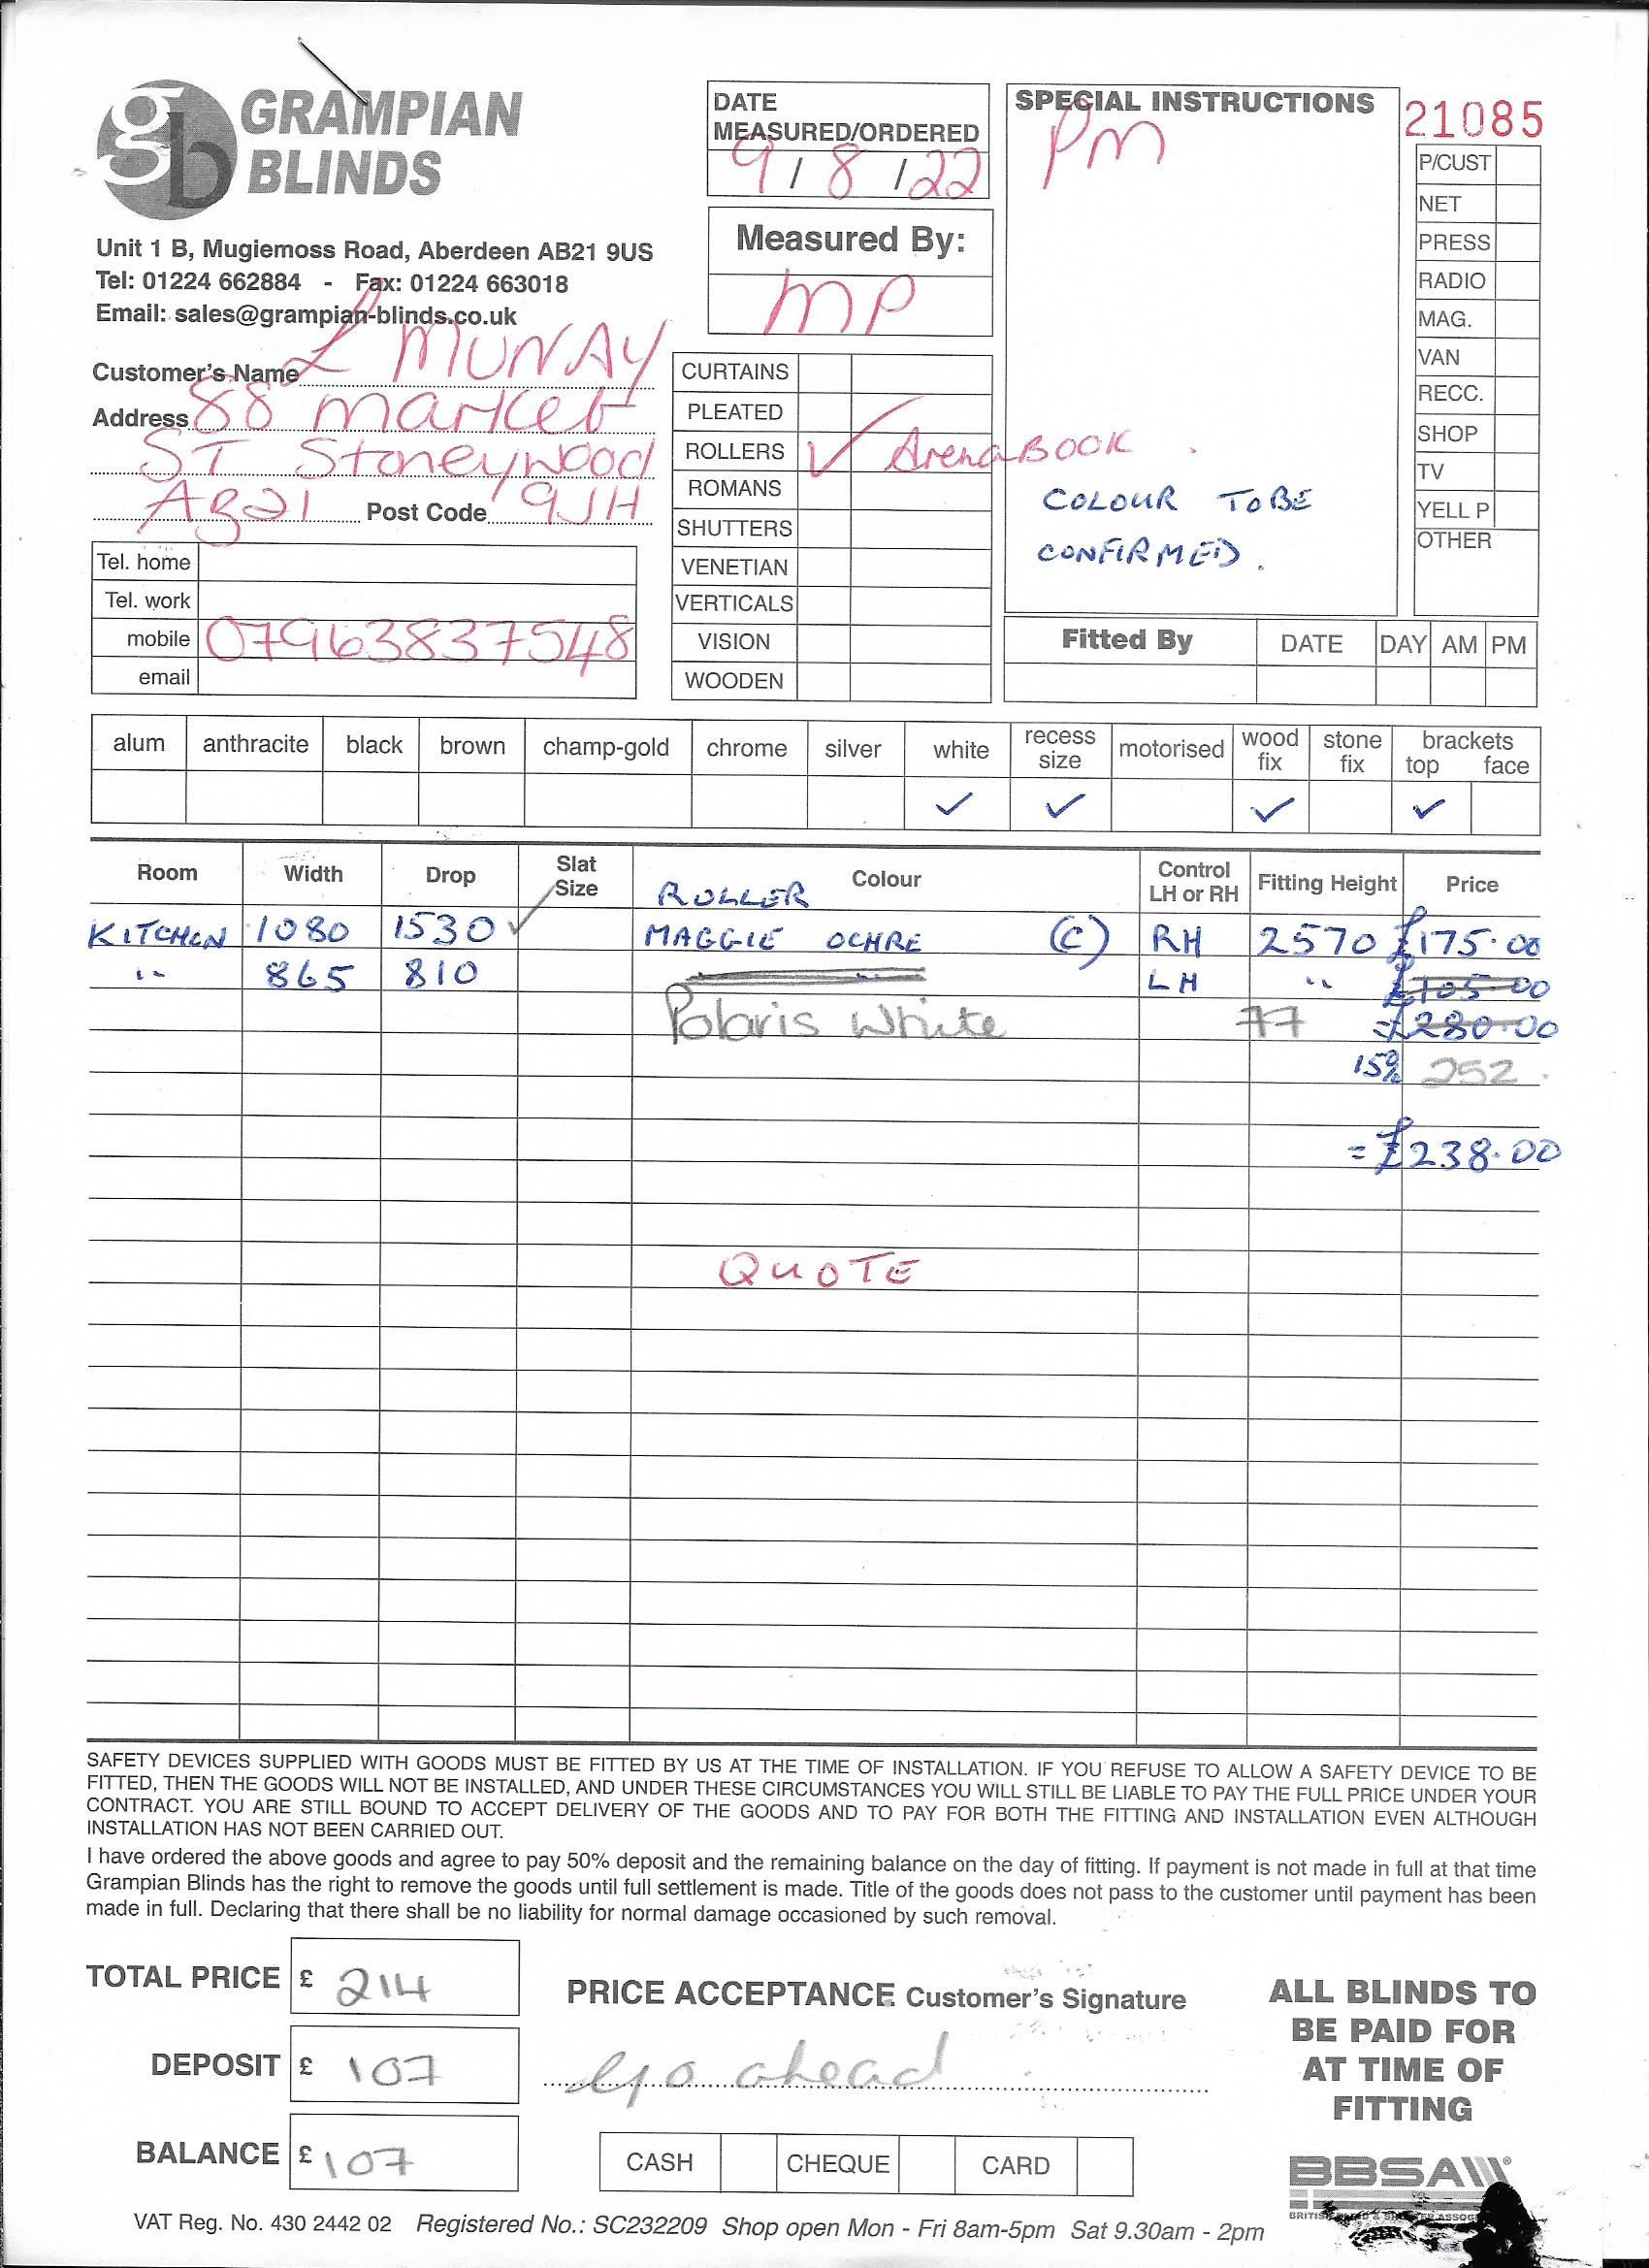 gb GRAMPIAN
BLINDS
Unit 1 B, Mugiemoss Road, Aberdeen AB21 9US
Tel: 01224 662884 - Fax: 01224 663018
Email: sales@grampian-blinds.co.uk
Customer's Name L MURRAY
Address 88 Market
ST Stoneywood
AB21 Post Code 9JH
Tel. home
Tel. work
mobile 07963837548
email
DATE
MEASURED/ORDERED
9 / 8 / 22
Measured By:
MP
CURTAINS
PLEATED
ROLLERS ✓ Arena BOOK
ROMANS
SHUTTERS
VENETIAN
VERTICALS
VISION
WOODEN
SPECIAL INSTRUCTIONS
PM
COLOUR TO BE
CONFIRMED.
21085
P/CUST
NET
PRESS
RADIO
MAG.
VAN
RECC.
SHOP
TV
YELL P
OTHER
Fitted By DATE DAY AM PM
alum anthracite black brown champ-gold chrome silver white recess size motorised wood fix stone fix brackets top face
✓ ✓ ✓ ✓
Room Width Drop Slat Size Colour Control LH or RH Fitting Height Price
ROLLER
KITCHEN 1080 1530 ✓ MAGGIE OCHRE (C) RH 2570 £175.00
" 865 810 LH " £105.00
Polaris White 77 =£280.00
15% 252
=£238.00
QUOTE
SAFETY DEVICES SUPPLIED WITH GOODS MUST BE FITTED BY US AT THE TIME OF INSTALLATION. IF YOU REFUSE TO ALLOW A SAFETY DEVICE TO BE
FITTED, THEN THE GOODS WILL NOT BE INSTALLED, AND UNDER THESE CIRCUMSTANCES YOU WILL STILL BE LIABLE TO PAY THE FULL PRICE UNDER YOUR
CONTRACT. YOU ARE STILL BOUND TO ACCEPT DELIVERY OF THE GOODS AND TO PAY FOR BOTH THE FITTING AND INSTALLATION EVEN ALTHOUGH
INSTALLATION HAS NOT BEEN CARRIED OUT.
I have ordered the above goods and agree to pay 50% deposit and the remaining balance on the day of fitting. If payment is not made in full at that time
Grampian Blinds has the right to remove the goods until full settlement is made. Title of the goods does not pass to the customer until payment has been
made in full. Declaring that there shall be no liability for normal damage occasioned by such removal.
TOTAL PRICE £ 214
DEPOSIT £ 107
BALANCE £ 107
PRICE ACCEPTANCE Customer's Signature
go ahead
CASH CHEQUE CARD
ALL BLINDS TO
BE PAID FOR
AT TIME OF
FITTING
BBSA
VAT Reg. No. 430 2442 02 Registered No.: SC232209 Shop open Mon - Fri 8am-5pm Sat 9.30am - 2pm